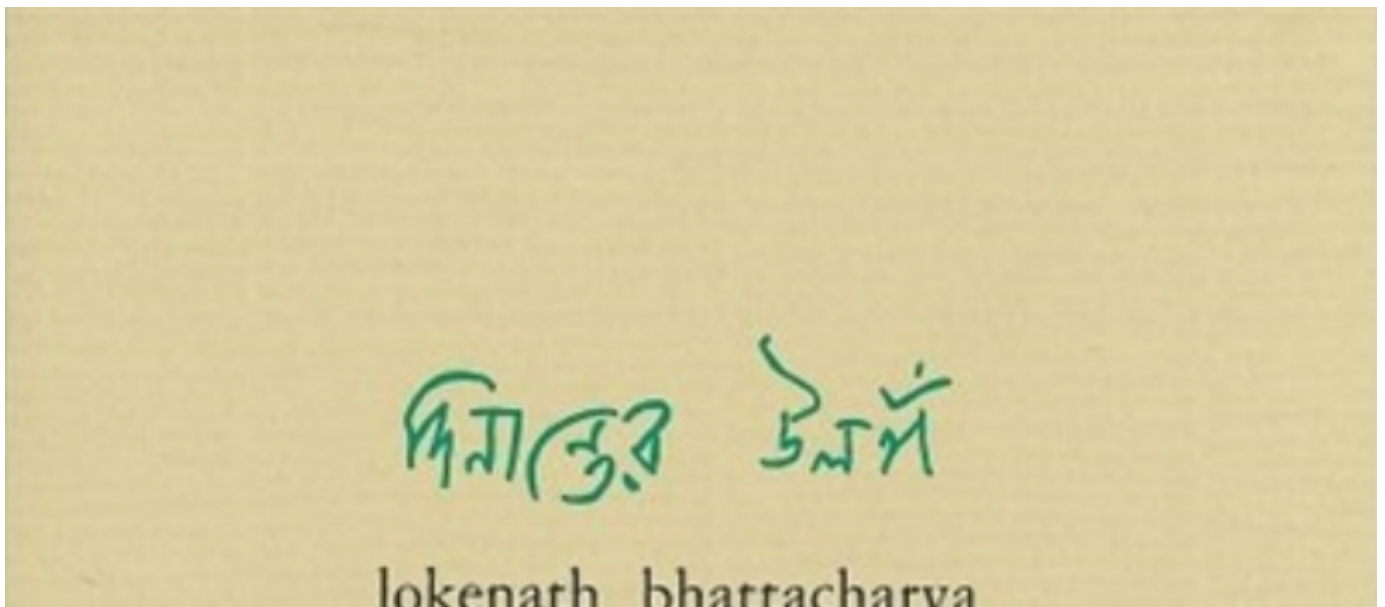 দিনান্তের উলঙ্গ
lokenath bhattacharya